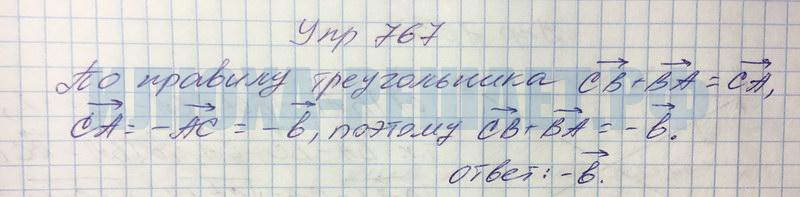 Упр 767
По правилу треугольника CB⃗ + BA⃗ = CA⃗,
CA⃗ = -AC⃗ = -b⃗, поэтому CB⃗ + BA⃗ = -b⃗.
ответ: -b⃗.